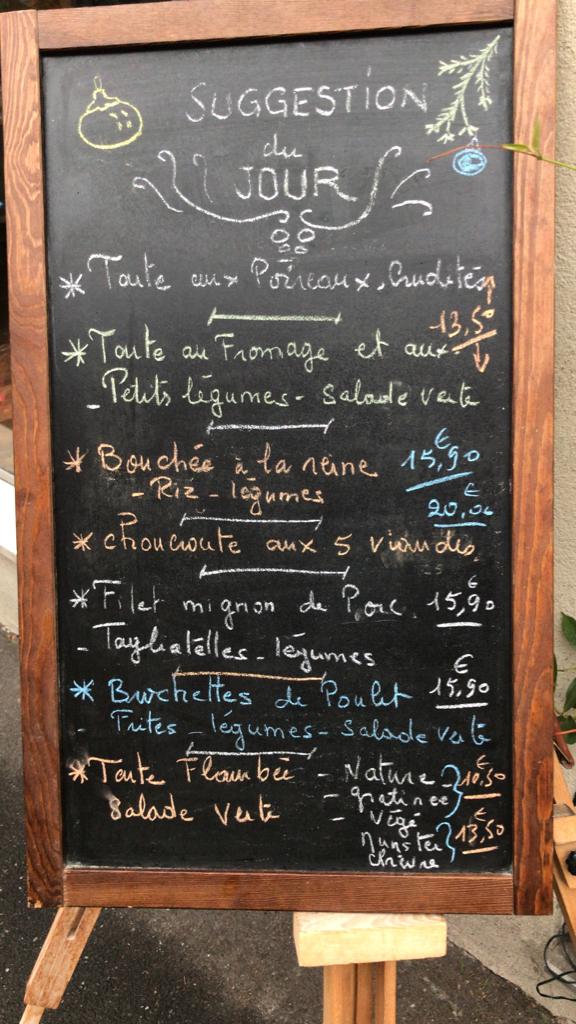 SUGGESTION
du
JOUR
* Tarte aux Poireaux, Crudités
13,50
* Tarte au Fromage et aux
- Petits légumes - Salade verte
* Bouchée à la reine 15,90 €
- Riz - légumes
20,00 €
* choucroute aux 5 viandes
* Filet mignon de Porc 15,90 €
- Tagliatelles - légumes
* Brochettes de Poulet 15,90 €
- Frites - légumes - Salade verte
* Tarte Flambée - Nature 10,50 €
- gratinée
Salade Verte - végé
Munster 13,50 €
chèvre